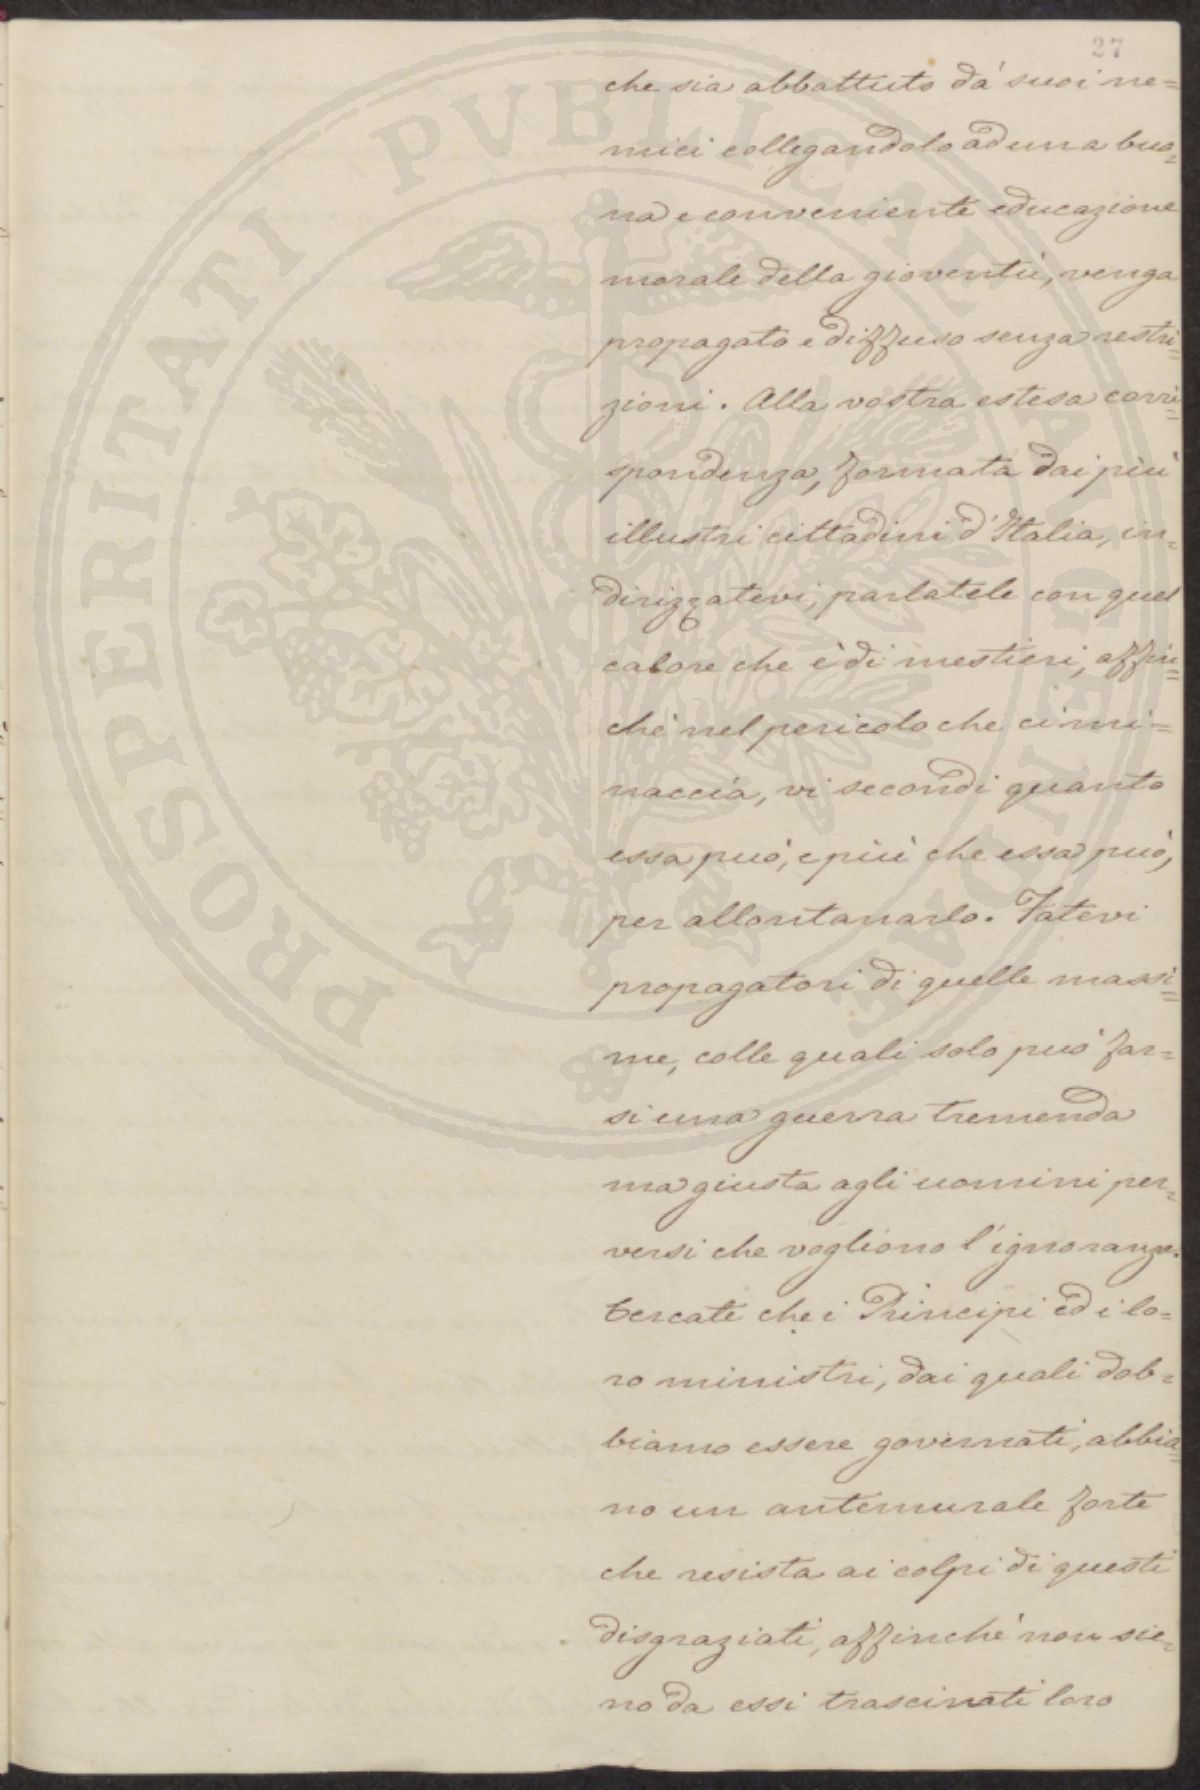 27
che sia abbattuto da' suoi ne=
mici collegandolo ad una buo=
na e conveniente educazione
morale della gioventù, venga
propagato e diffuso senza restri=
zioni. Alla vostra estesa corri=
spondenza, formata dai più
illustri cittadini d'Italia, in=
dirizzatevi, parlatele con quel
calore che è di mestieri, affin=
chè nel pericolo che ci mi=
naccia, vi secondi quanto
essa può, e più che essa può,
per allontanarlo. Fatevi
propagatori di quelle massi=
me, colle quali solo può far=
si una guerra tremenda
ma giusta agli uomini per=
versi che vogliono l'ignoranza.
Cercate che i Principi ed i lo=
ro ministri, dai quali dob=
biamo essere governati, abbia=
no un antemurale forte
che resista ai colpi di questi
disgraziati, affinchè non sie=
no da essi trascinati loro
PROSPERITATI PVBLICAE AVGENDAE